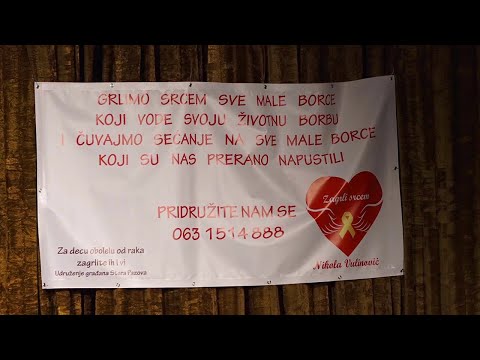 GRLIMO SRCEM SVE MALE BORCE
KOJI VODE SVOJU ŽIVOTNU BORBU
I ČUVAJMO SEĆANJE NA SVE MALE BORCE
KOJI SU NAS PRERANO NAPUSTILI
PRIDRUŽITE NAM SE
063 1514 888
Zagrli srcem
Nikola Vulinović
Za decu obolelu od raka
zagrlite ih i vi
Udruženje građana Stara Pazova